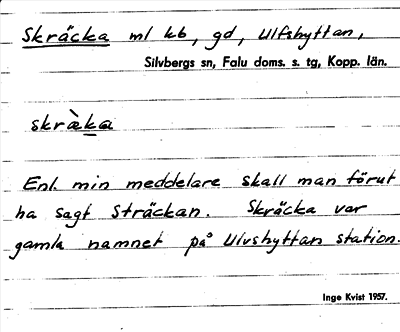 Skräcka ml kb, gd, Ulfshyttan,
Silvbergs sn, Falu doms. s. tg, Kopp. län.
skrὰka
Enl. min meddelare skall man förut
ha sagt Sträckan. Skräcka var
gamla namnet på Ulvshyttan station.
Inge Kvist 1957.